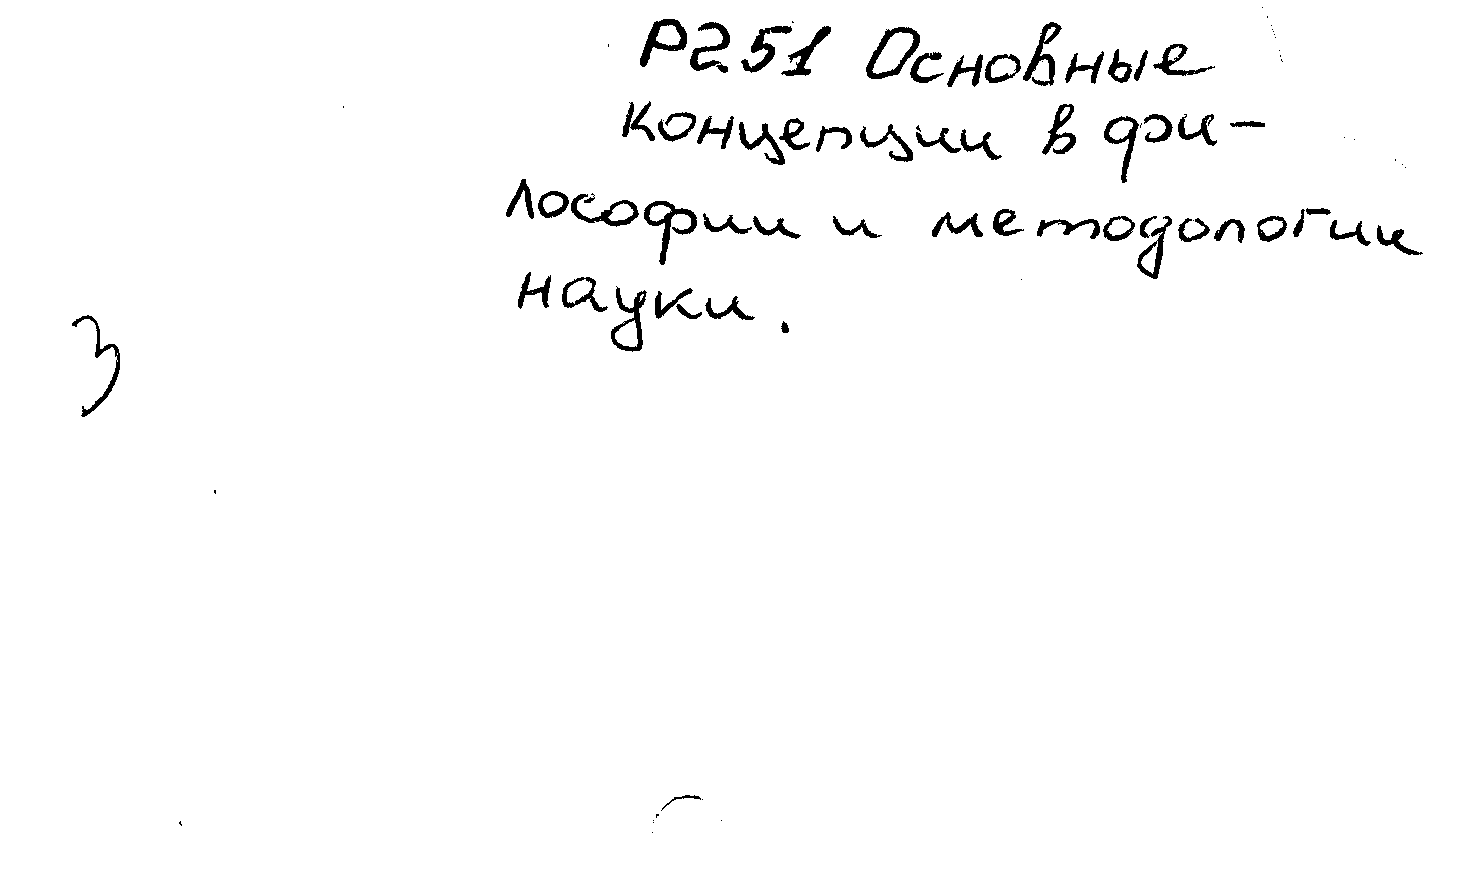 Р251 Основные
концепции в фи-
лософии и методологии
науки.
3